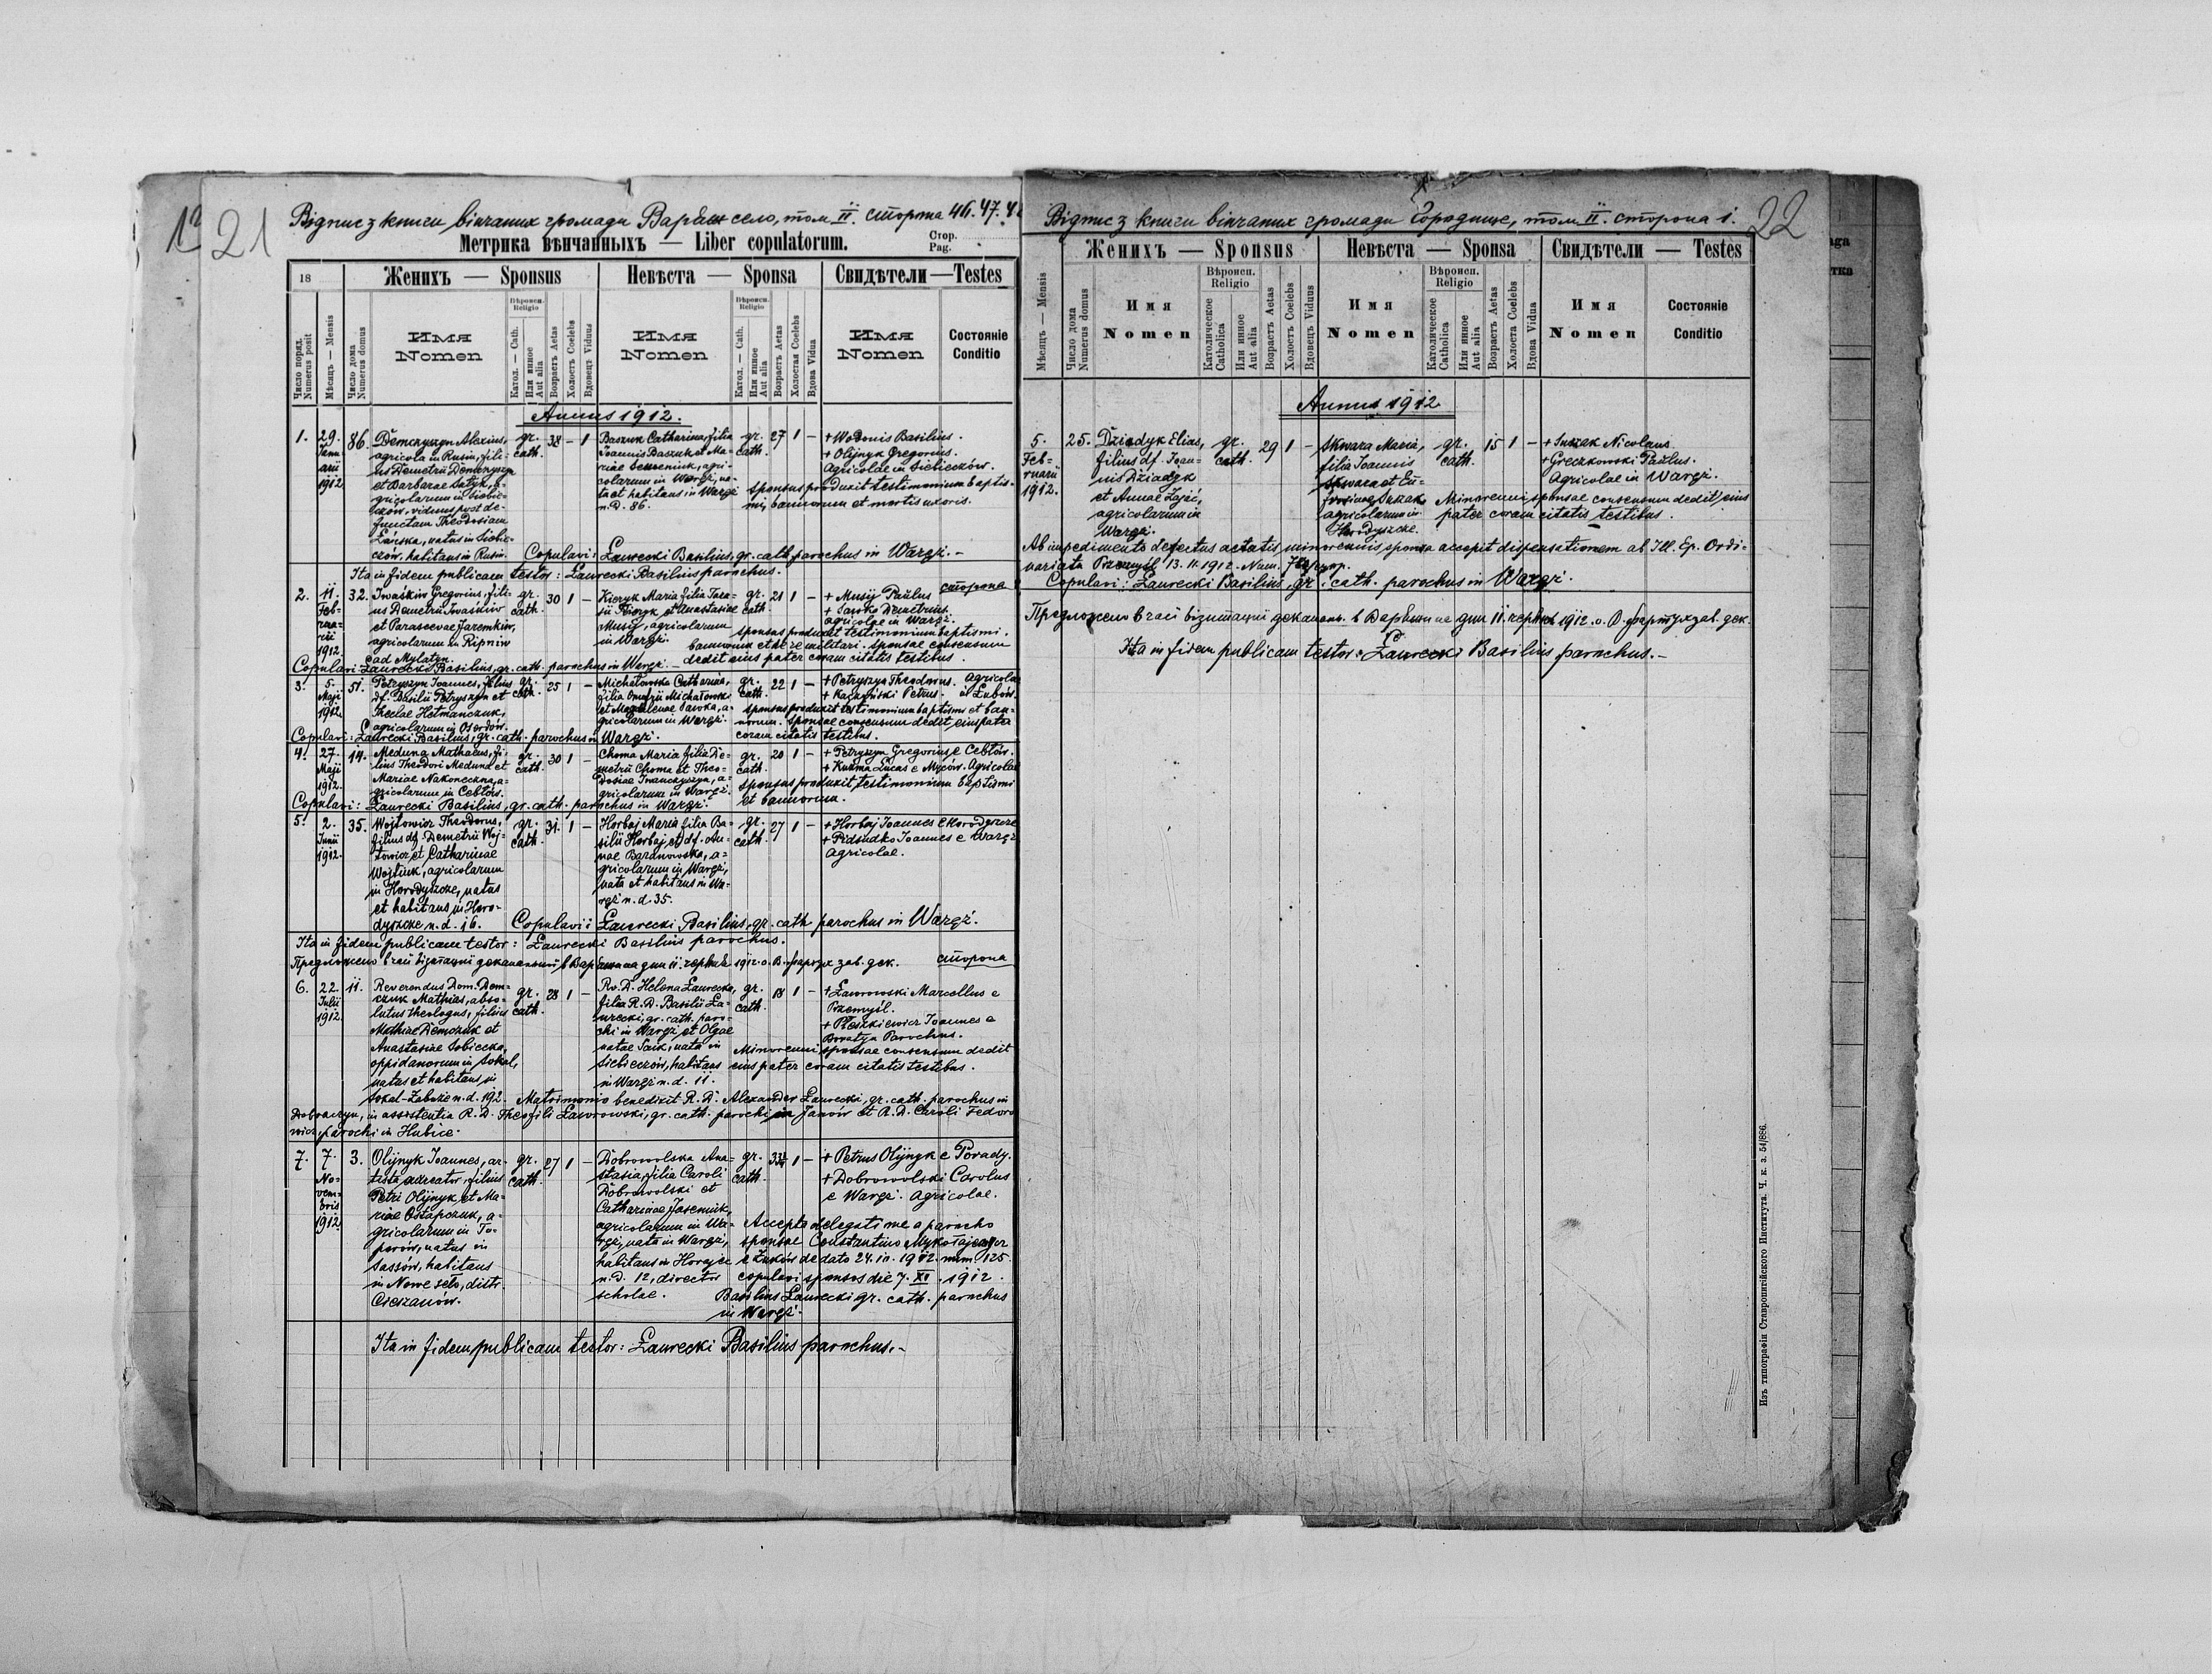 12 21
Відпис з книги вінчаних громади Варяж село, том II. сторона 46. 47. 4
Метрика вѣнчанныхъ — Liber copulatorum.
Стор.
Pag.
18
Женихъ — Sponsus
Невѣста — Sponsa
Свидѣтели — Testes
Число поряд.
Numerus posit
Мѣсяцъ — Mensis
Число дома
Numerus domus
Имя
Nomen
Вѣроисп.
Religio
Катол. — Cath.
Или инное
Aut alia
Возрастъ Aetas
Холостъ Coelebs
Вдовецъ Viduus
Имя
Nomen
Вѣроисп.
Religio
Катол. — Cath.
Или инное
Aut alia
Возрастъ Aetas
Холостая Coelebs
Вдова Vidua
Имя
Nomen
Состояніе
Conditio
Annus 1912.
1. 29. Januarii 1912 86.
Demczyszyn Alexius,
agricola in Rusin, fili-
us Demetrii Demczyszyn
et Barbarae Satyk, a-
gricolarum in Siebie-
czów, viduus post de-
functam Theodosiam
natus in Siebie-
czów, habitans in Rusin.
gr. cath. 38 — 1
Baszuk Catharina, filia
Joannis Baszuk et Ma-
riae agri-
colarum in Waręż, na-
ta et habitans in Waręż
n.d. 86.
gr. cath. 27 1 —
+ Wodonis Basilius.
+ Olijnyk Gregorius.
Agricolae in Siebieczów.
Sponsus produxit testimonium baptis-
mi, bannorum et mortis uxoris.
Copulavi: Ławrecki Basilius, gr. cath. parochus in Waręż. —
Ita in fidem publicam testor: Ławrecki Basilius parochus.
сторона
2. 11. Februarii 1912 32.
Iwaskiw Gregorius, fili-
us Demetrii Iwaskiw
et Parascevae Jaremkiw,
agricolarum in Ripniw
ad Mylatyn.
gr. cath. 30 1 —
Kieryk Maria filia Tara-
sii Kieryk et Anastasiae
Musij, agricolarum
in Waręż.
gr. cath. 21 1 —
+ Musij Paulus
+ Sawko Demetrius.
agricolae in Waręż.
Sponsus produxit testimonium baptismi.
bannorum et de re militari. Sponsae consensum
dedit eius pater coram citatis testibus.
Copulavi: Ławrecki Basilius, gr. cath. parochus in Waręż. —
3. 5. Maji 1912 51.
Petryszyn Joannes, filius
df. Basilii Petryszyn et
Theclae Hetmanczuk,
agricolarum in Oserdów.
gr. cath. 25 1 —
Michałowska Catharina,
filia Onufrii Michałowski
et Magdalenae Sawka, a-
gricolarum in Waręż.
gr. cath. 22 1 —
+ Petryszyn Theodorus. Agricolae
+ Petrus. e Łubów.
Sponsus produxit testimonium baptismi et ban-
norum. Sponsae consensum dedit eius pater
coram citatis testibus.
Copulavi: Ławrecki Basilius, gr. cath. parochus in Waręż.
4. 27. Maji 1912. 14.
Meduna Mathaeus, fi-
lius Theodori Meduna et
Mariae Nakoneczna, a-
gricolarum in Cebłów.
gr. cath. 30 1 —
Choma Maria filia De-
metrii Choma et Theo-
dosiae Iwanczyszyn, a-
gricolarum in Waręż.
gr. cath. 20 1 —
+ Petryszyn Gregorius e Cebłów.
+ Kuzma Lucas e Myców. Agricolae
Sponsus produxit testimonium baptismi
et bannorum.
Copulavi: Ławrecki Basilius, gr. cath. parochus in Waręż.
5. 2. Junii 1912. 35.
Wojtowicz Theodorus,
filius df. Demetrii Woj-
towicz et Catharinae
Wojtiuk, agricolarum
in Horodyszcze, natus
et habitans in Horo-
dyszcze n.d. 16.
gr. cath. 31. 1 —
Horbaj Maria filia Ba-
silii Horbaj et df. An-
nae Baranowska, a-
gricolarum in Waręż,
nata et habitans in Wa-
ręż n.d. 35.
gr. cath. 27 1 —
+ Horbaj Joannes e Horodyszcze
+ Pidsudko Joannes e Waręż
Agricolae.
Copulavi: Ławrecki Basilius, gr. cath. parochus in Waręż.
Ita in fidem publicam testor: Ławrecki Basilius parochus.
Предложено в часі візитації деканальної в Варяжи на дни 11. червня 1912. о. В. зав. дек.
сторона
6. 22. Julii 1912. 11.
Reverendus Dom. Dem-
czuk Mathias, abso-
lutus theologus, filius
Mathiae Demczuk et
Anastasiae Sobiecka,
oppidanorum in Sokal,
natus et habitans in
Sokal-Zabuże n.d. 192.
gr. cath. 28 1 —
Rv. D. Helena Ławrecka,
filia R. D. Basilii Ła-
wrecki, gr. cath. paro-
chi in Waręż et Olgae
natae Saik, nata in
Siebieczów, habitans
in Waręż n.d. 11.
gr. cath. 18 1 —
+ Ławrowski Marcellus e
Przemyśl.
+ Pleszkiewicz Joannes e
Boratyn Parochus.
Minorenni sponsae consensum dedit
eius pater coram citatis testibus.
Matrimonio benedixit R. D. Alexander Ławrecki, gr. cath. parochus in
Dobraczyn, in assistentia R. D. Theofili Ławrowski, gr. cath. parochi in Janów et R. D. Caroli Fedoro
wicz, parochi in Hubice.
7. 7. Novembris 1912 3.
Olijnyk Joannes, ar-
tista filius
Petri Olijnyk et Ma-
riae Ostapczuk, a-
gricolarum in To-
porów, natus in
Sassów, habitans
in Nowe Seło, distr.
Cieszanów.
gr. cath. 27 1 —
Dobrowolska Ana-
stasia, filia Caroli
Dobrowolski et
Catharinae Jaseniuk,
agricolarum in Wa-
ręż, nata in Waręż,
habitans in Horajce
n.d. 12, director
scholae.
gr. cath. 1 —
+ Petrus Olijnyk e Porady.
+ Dobrowolski Carolus
e Waręż. Agricolae.
Accepta delegati me a parocho
sponsae Constantino
e Żuków de dato 24. 10. 1912. num 125.
copulavi sponsos die 7. XI. 1912.
Basilius Ławrecki gr. cath. parochus
in Waręż.
Ita in fidem publicam testor: Ławrecki Basilius parochus. —
22
Відпис з книги вінчаних громади Городище, том II. сторона 1.
Женихъ — Sponsus
Невѣста — Sponsa
Свидѣтели — Testes
Мѣсяцъ — Mensis
Число дома
Numerus domus
Имя
Nomen
Вѣроисп.
Religio
Католическое
Catholica
Или инное
Aut alia
Возрастъ Aetas
Холостъ Coelebs
Вдовецъ Viduus
Имя
Nomen
Вѣроисп.
Religio
Католическое
Catholica
Или инное
Aut alia
Возрастъ Aetas
Холоста Coelebs
Вдова Vidua
Имя
Nomen
Состояніе
Conditio
Annus 1912
5. Februarii 1912. 25.
Dziadyk Elias,
filius df. Joan-
nis Dziadyk
et Annae Zajić,
agricolarum in
Waręż.
gr. cath. 29 1 —
Skwara Maria,
filia Joannis
Skwara et Eu-
frosinae Suszak
agricolarum in
Horodyszcze.
gr. cath. 15 1 —
+ Suszak Nicolaus
+ Greczkowski Paulus.
Agricolae in Waręż.
Minorenni sponsae consensum dedit eius
pater coram citatis testibus.
Ab impedimento defectus aetatis minorennis sponsa accepit dispensationem ab Ill. Ep. Ordi-
nariatu Przemyśl 13. II. 1912. Num.
Copulavi: Ławrecki Basilius, gr. cath. parochus in Waręż.
Предложено в часі візитації деканаль. в Варяжи на дни 11. червня 1912. о. В. зав. дек.
Ita in fidem publicam testor: Ławrecki Basilius parochus. —
Изъ типографіи Ставропигійского Института. Ч. к. з. 54/886.